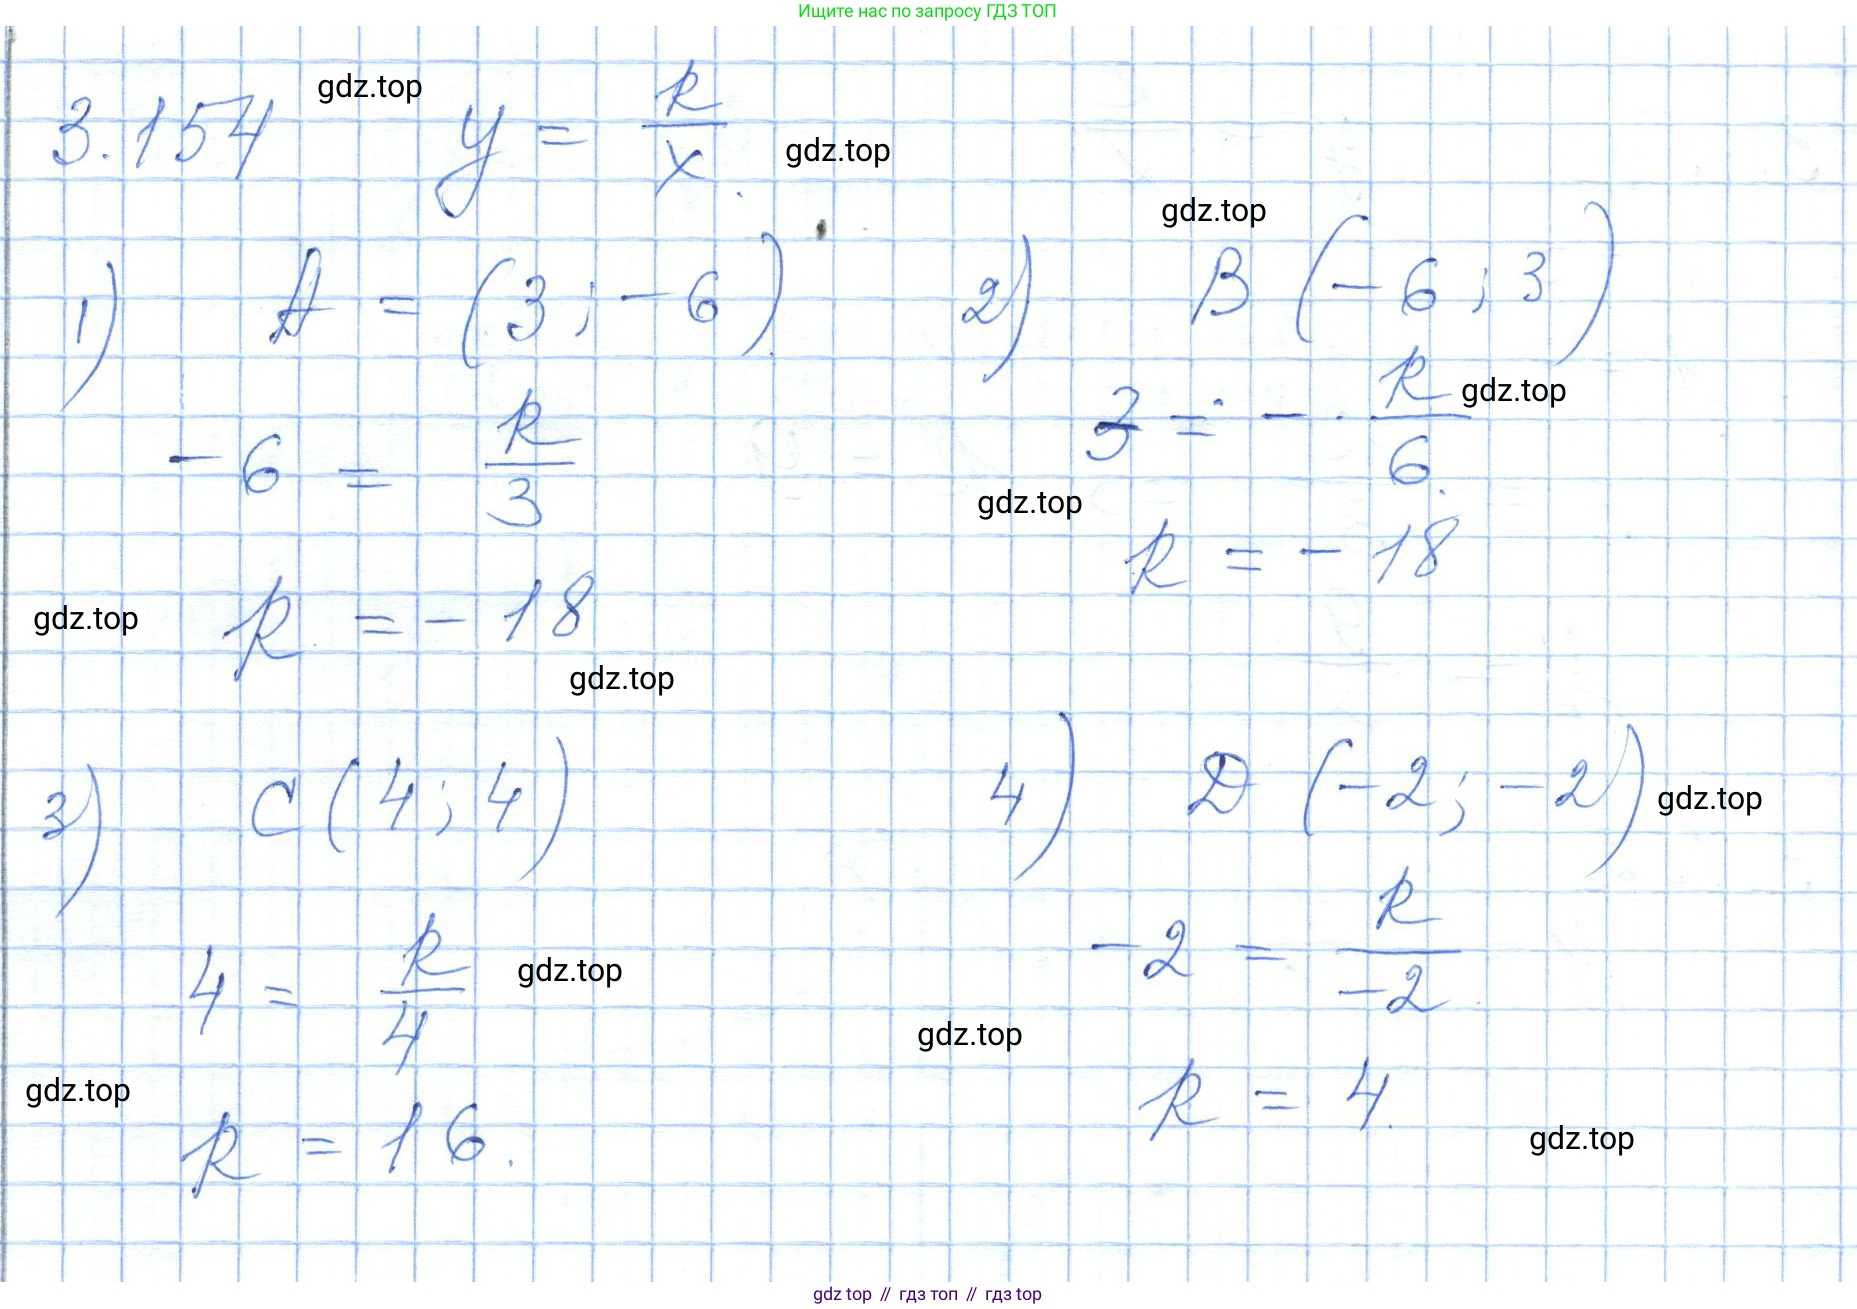 Ищите нас по запросу ГДЗ ТОП
gdz.top
3.154 y = k/x
gdz.top
gdz.top
1) A = (3; -6) 2) B (-6; 3)
-6 = k/3 3 = - k/6
gdz.top
gdz.top
k = -18 k = -18
gdz.top
gdz.top
3) C (4; 4) 4) D (-2; -2)
gdz.top
4 = k/4 -2 = k/-2
gdz.top
gdz.top
k = 16. k = 4.
gdz.top
gdz.top
gdz top // гдз топ // гдз top